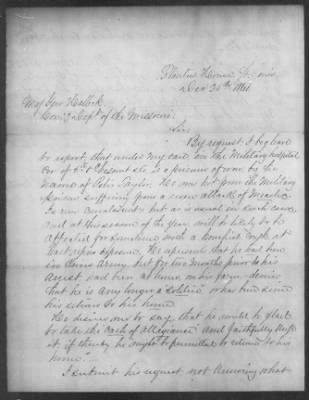 Planters House St. Louis
Dec 30th 1861
Maj Genl Halleck
Com'g Dept of the Missouri
Sir
By request I beg leave
to report, that under my care in the Military hospital
Cor of 5th & is a prisoner of war by the
name of Peter Taylor. He was sent from the Military
prison suffering from a severe attack of Measles
Is now convalescent but as is usual in such cases
and at this season of the year will be likely to be
affected for sometime with a troublesome cough at
least upon exposure. He represents that he had been
in Army but for two months prior to his
arrest, had been at home on his farm denies
that he is any longer a "soldier" or has been since
his return to his home.
He desires me to say that he would be glad
to take the oath of allegiance and faithfully keep
it if thereby he might be permitted to return to his
home.
I submit his request not knowing what